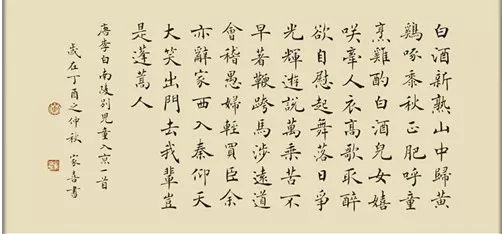 白酒新熟山中歸黃
鷄啄黍秋正肥呼童
烹雞酌白酒兒女嬉
咲牽人衣高歌取醉
欲自慰起舞落日爭
光輝遊說萬乘苦不
早著鞭跨馬涉遠道
會稽愚婦輕買臣余
亦辭家西入秦仰天
大笑出門去我輩豈
是蓬蒿人
唐李白南陵別兒童入京一首
歲在丁酉之仲秋 家喜書